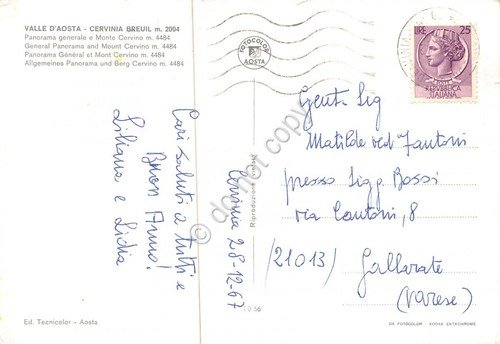 VALLE D'AOSTA - CERVINIA BREUIL m. 2004
Panorama generale e Monte Cervino m. 4484
General Panorama and Mount Cervino m. 4484
Panorama Général et Mont Cervino m. 4484
Allgemeines Panorama und Berg Cervino m. 4484
Cari saluti a tutti e
Buon Anno!
Liliana e Lidia
Cervinia 28-12-67
Ed. Tecnicolor - Aosta
FOTOCOLOR
AOSTA
do not copy
LIRE 25
REPVBBLICA
ITALIANA
Gent. Sig
Matilde ved. Fantoni
presso Sigg. Bossi
via Cantoni, 8
(21013) Gallarate
(Varese)
DA FOTOCOLOR KODAK EKTACHROME